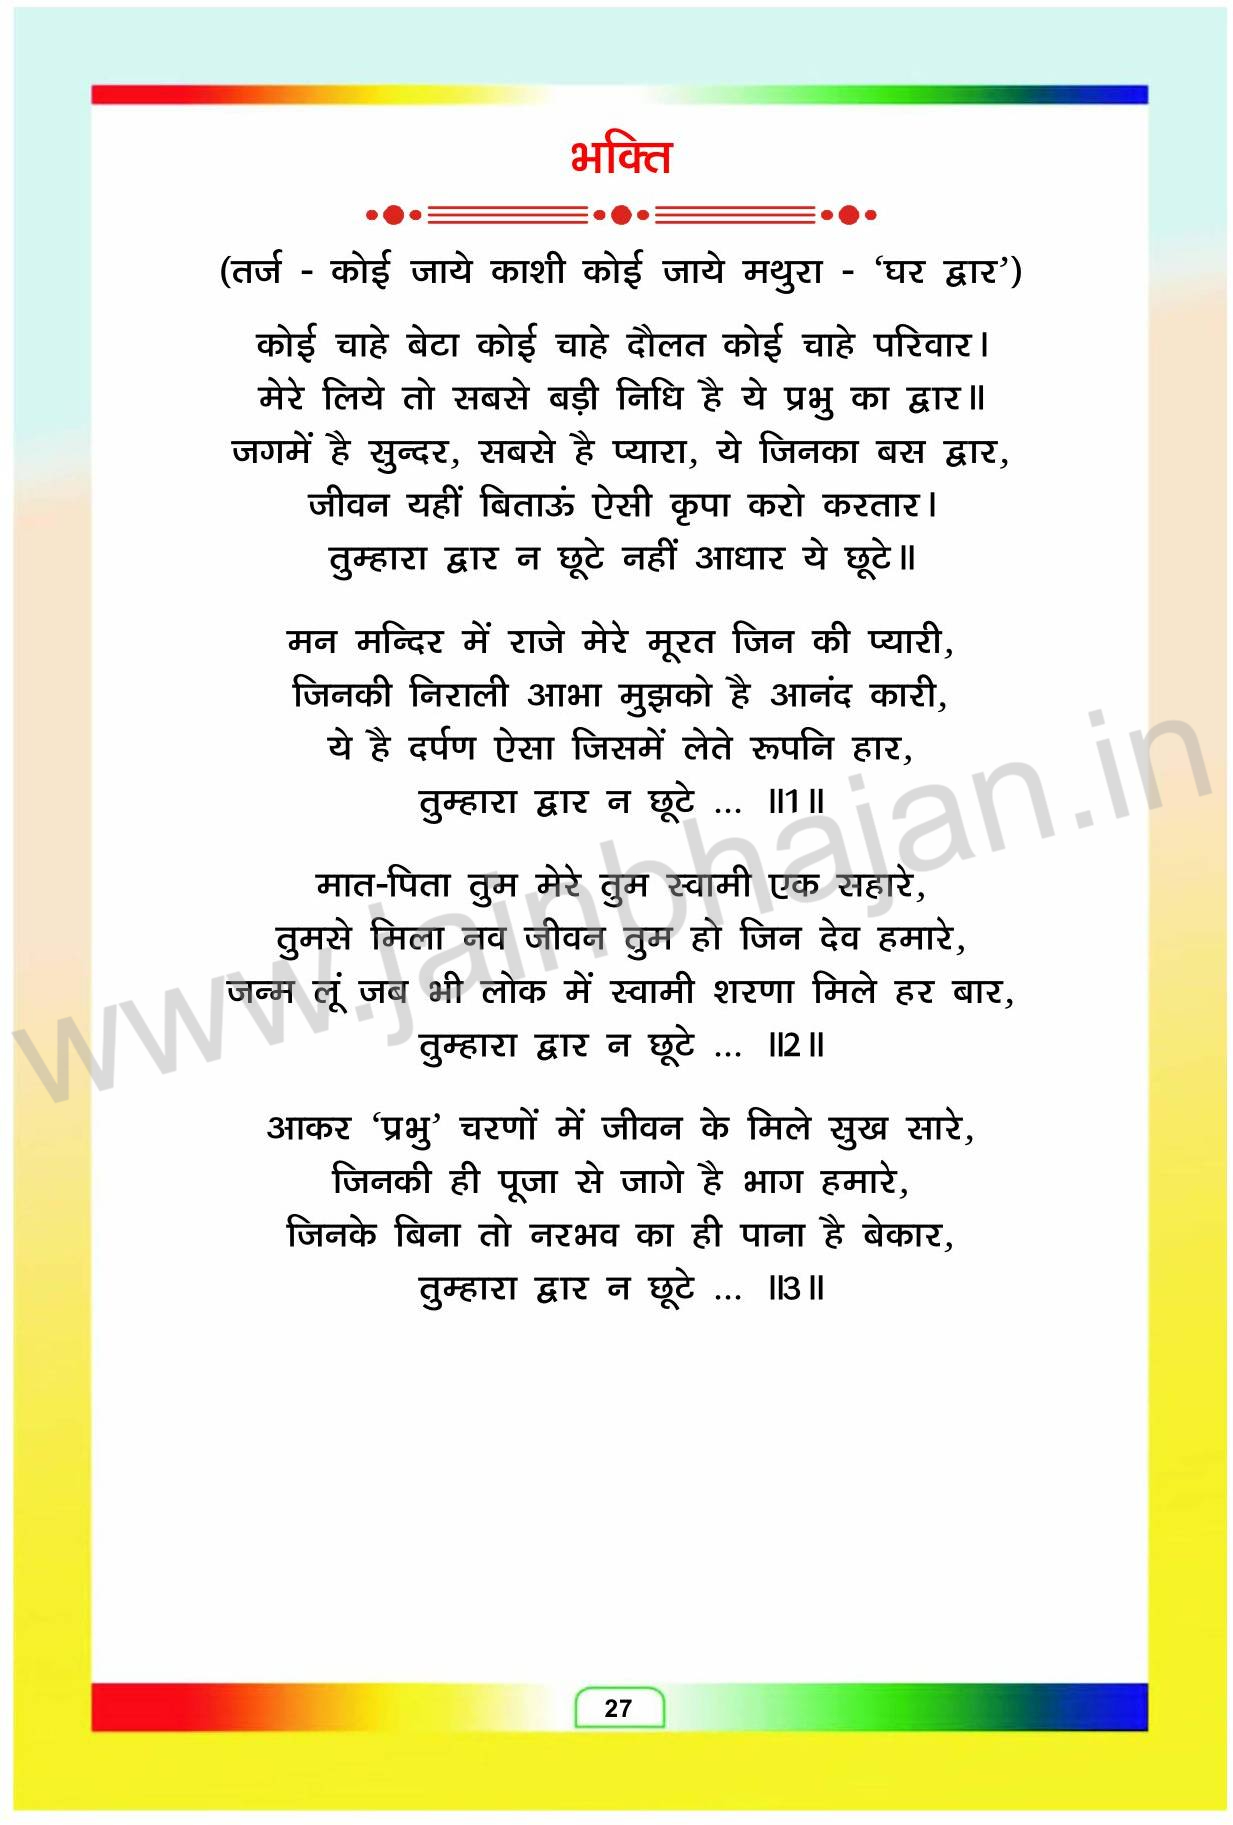 भक्ति
(तर्ज - कोई जाये काशी कोई जाये मथुरा - ‘घर द्वार’)
कोई चाहे बेटा कोई चाहे दौलत कोई चाहे परिवार।
मेरे लिये तो सबसे बड़ी निधि है ये प्रभु का द्वार॥
जगमें है सुन्दर, सबसे है प्यारा, ये जिनका बस द्वार,
जीवन यहीं बिताऊं ऐसी कृपा करो करतार।
तुम्हारा द्वार न छूटे नहीं आधार ये छूटे॥
मन मन्दिर में राजे मेरे मूरत जिन की प्यारी,
जिनकी निराली आभा मुझको है आनंद कारी,
ये है दर्पण ऐसा जिसमें लेते रूपनि हार,
तुम्हारा द्वार न छूटे ... ॥1॥
मात-पिता तुम मेरे तुम स्वामी एक सहारे,
तुमसे मिला नव जीवन तुम हो जिन देव हमारे,
जन्म लूं जब भी लोक में स्वामी शरणा मिले हर बार,
तुम्हारा द्वार न छूटे ... ॥2॥
आकर ‘प्रभु’ चरणों में जीवन के मिले सुख सारे,
जिनकी ही पूजा से जागे है भाग हमारे,
जिनके बिना तो नरभव का ही पाना है बेकार,
तुम्हारा द्वार न छूटे ... ॥3॥
www.jainbhajan.in
27